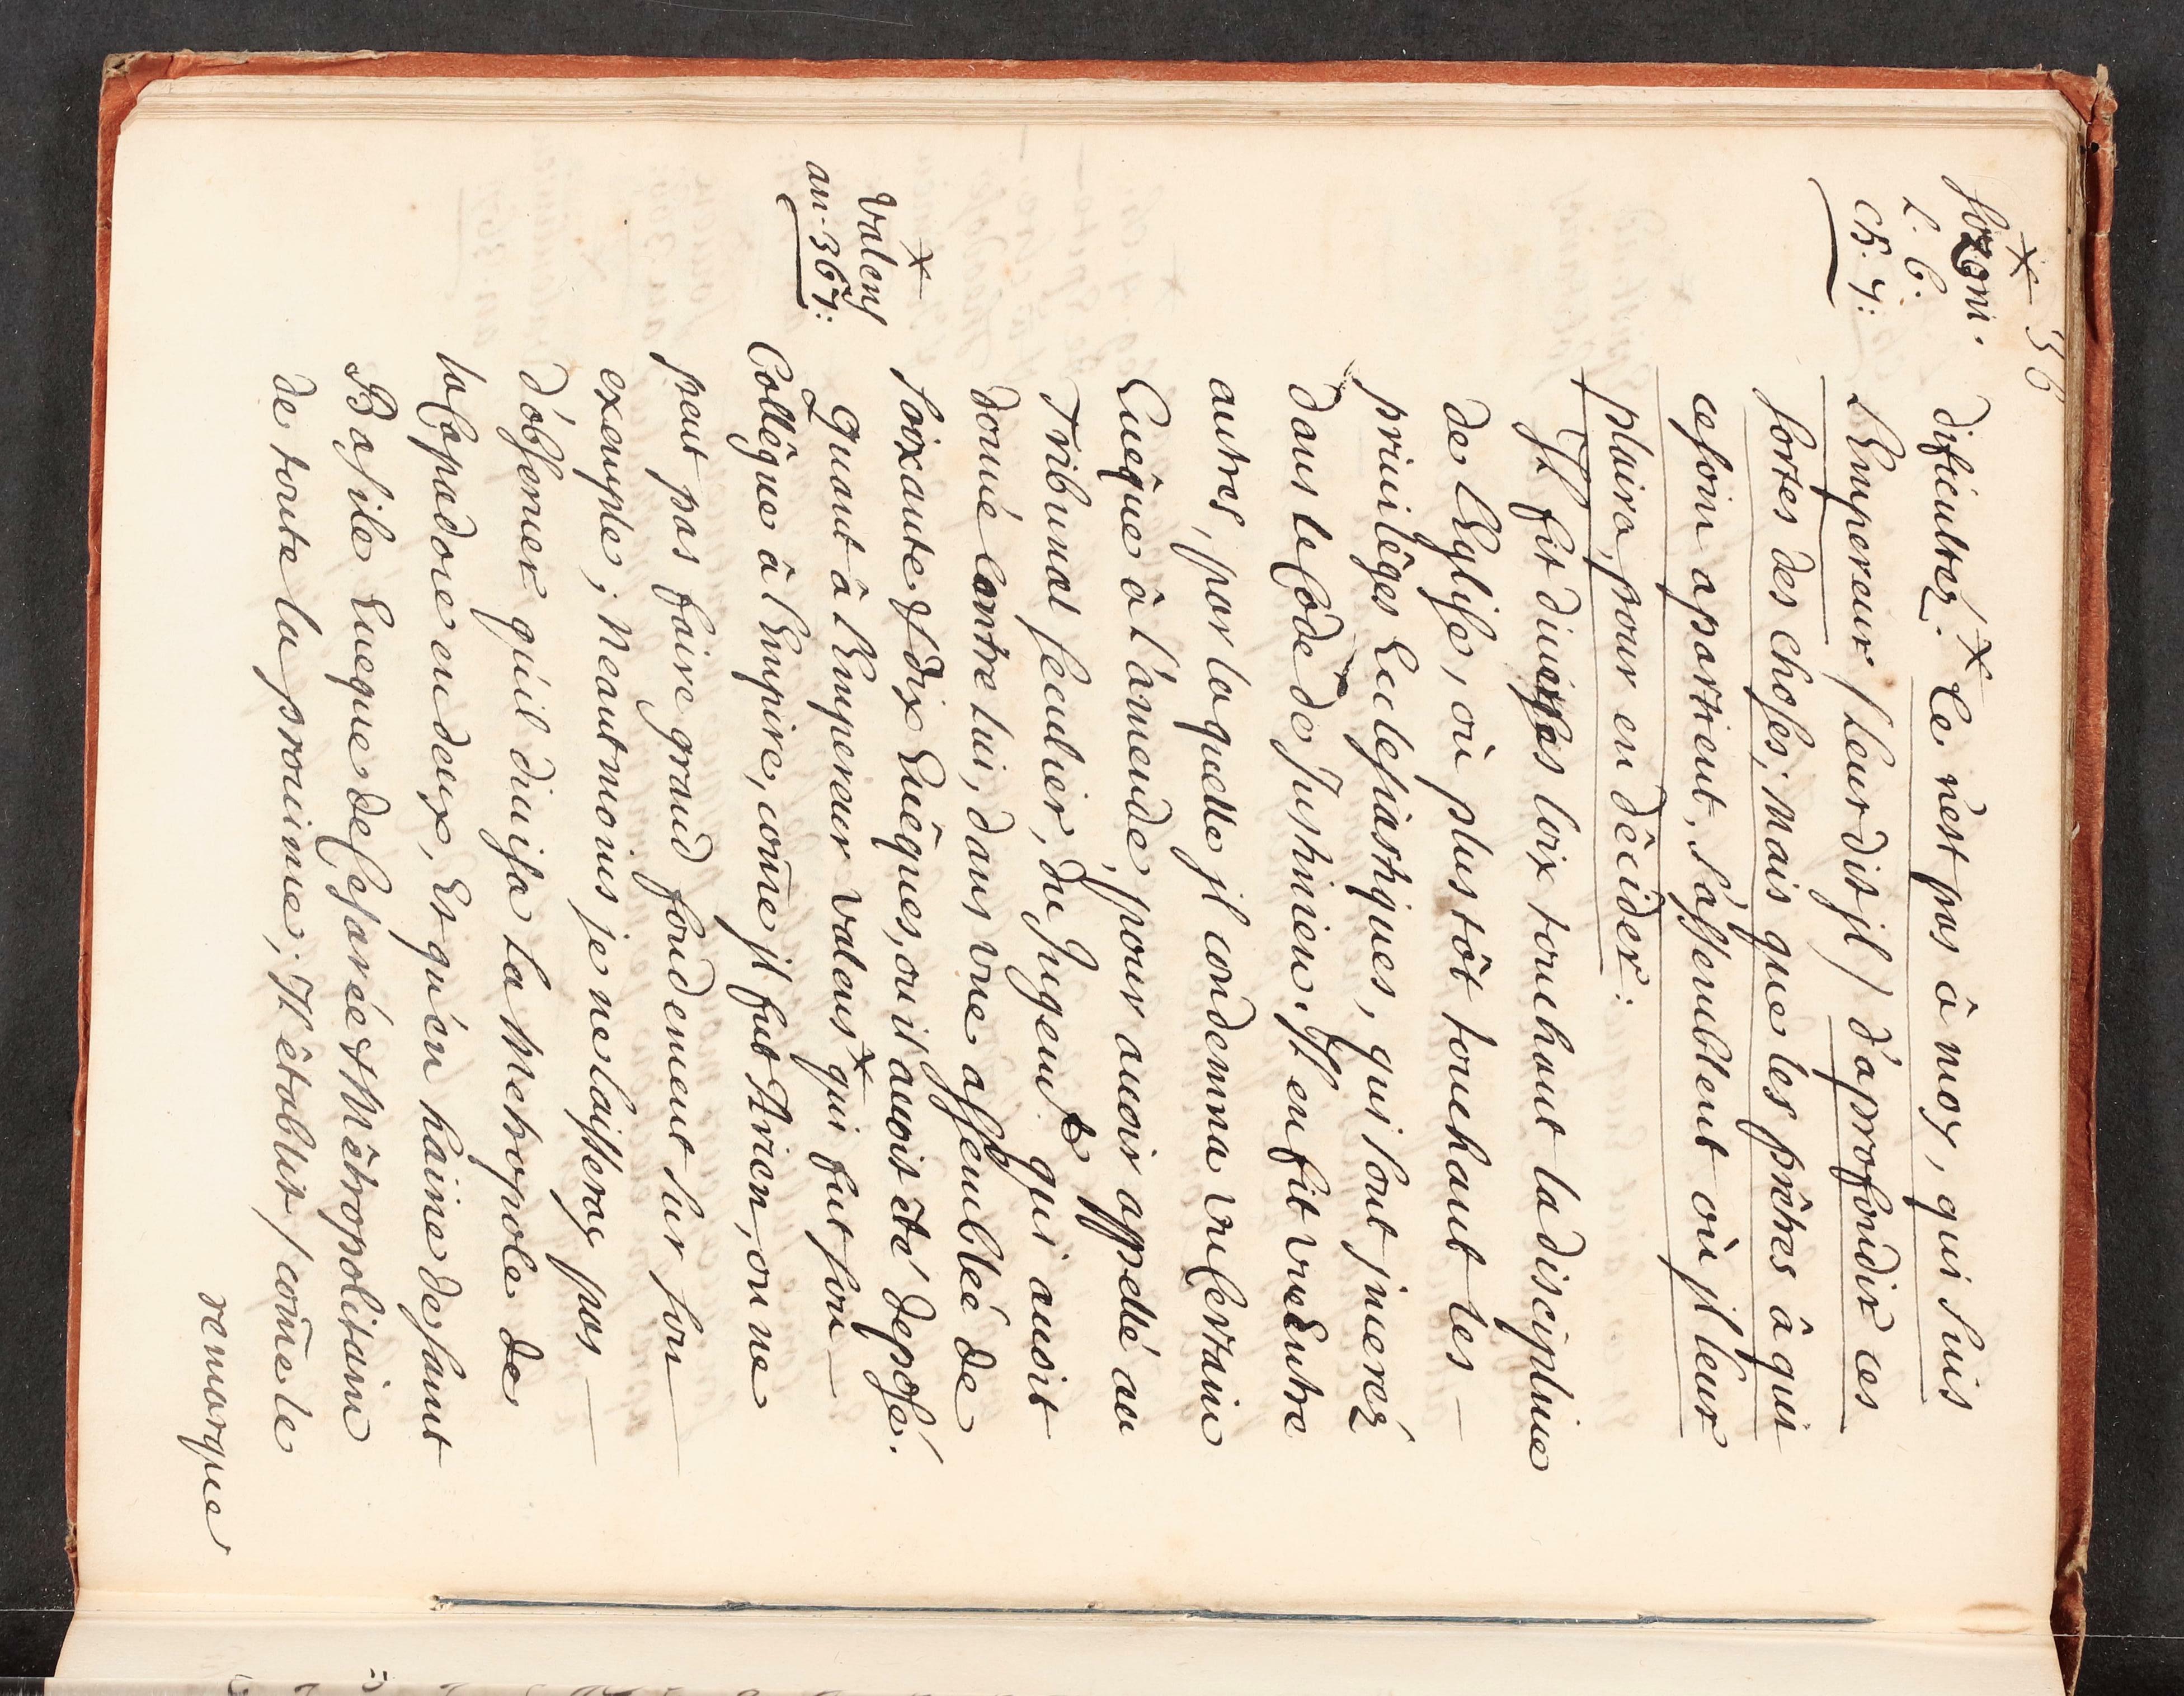 36
*
Sozomi.
L. 6.
ch. 7:
dificultez. * Ce n'est pas à moy, qui suis
l'Empereur / leur dit jl / d'aprofondir ces
sortes des choses; Mais que les prêtres à qui
ce soin apartient, s'assemblent où jl leur
plaira, pour en dêcider:
Jl fit diuerses loix touchant la discipline
de l'Eglise, où plus tôt touchant les
priuilêges Ecclesiastiques, qui sont jnserez
dans le Côde de Justinien. Jl en fit vne Entre
autres, par laquelle jl condemna vn Certain
Euêque à l'amende, pour auoir appellé au
Tribunal seculier, du Jugemt. qui auoit
doñé Contre lui, dans vne assemblée de
soixante & dix Euêques, ou il auoit êté deposé.
*
Valens
an. 367:
Quant à l'Empereur Valens * qui fut son
Collêgue à l'Empire, com̃e jl fut Arien, on ne
peut pas faire grand fondement sur son
exemple; Neantmoins je ne laisseray pas
d'obseruer qu'il diuisa la Metropole de
la Capadoce en deux, Et qu'en haine de saint
Basile Eueque de Cesarée & Mêtropolitain
de toute la prouince; Jl êtablit / com̃e le
remarque